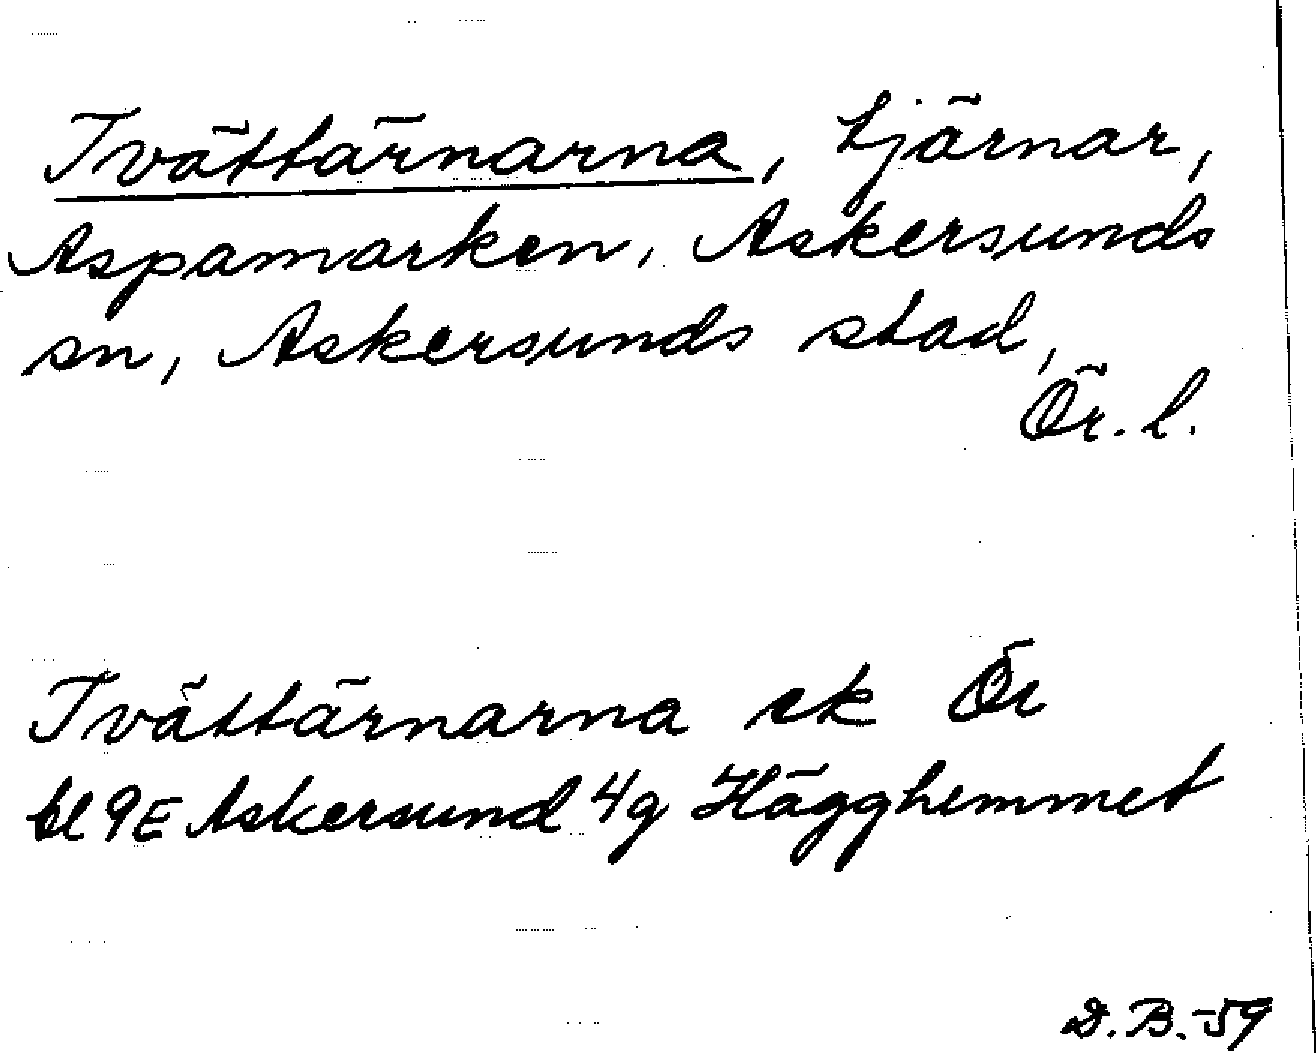 Tvättärnarna, tjärnar,
Aspamarken, Askersunds
sn, Askersunds stad,
Ör. l.
Tvättärnarna ek Ör
bl 9E Askersund 4g Hägghemmet
D. B. -59